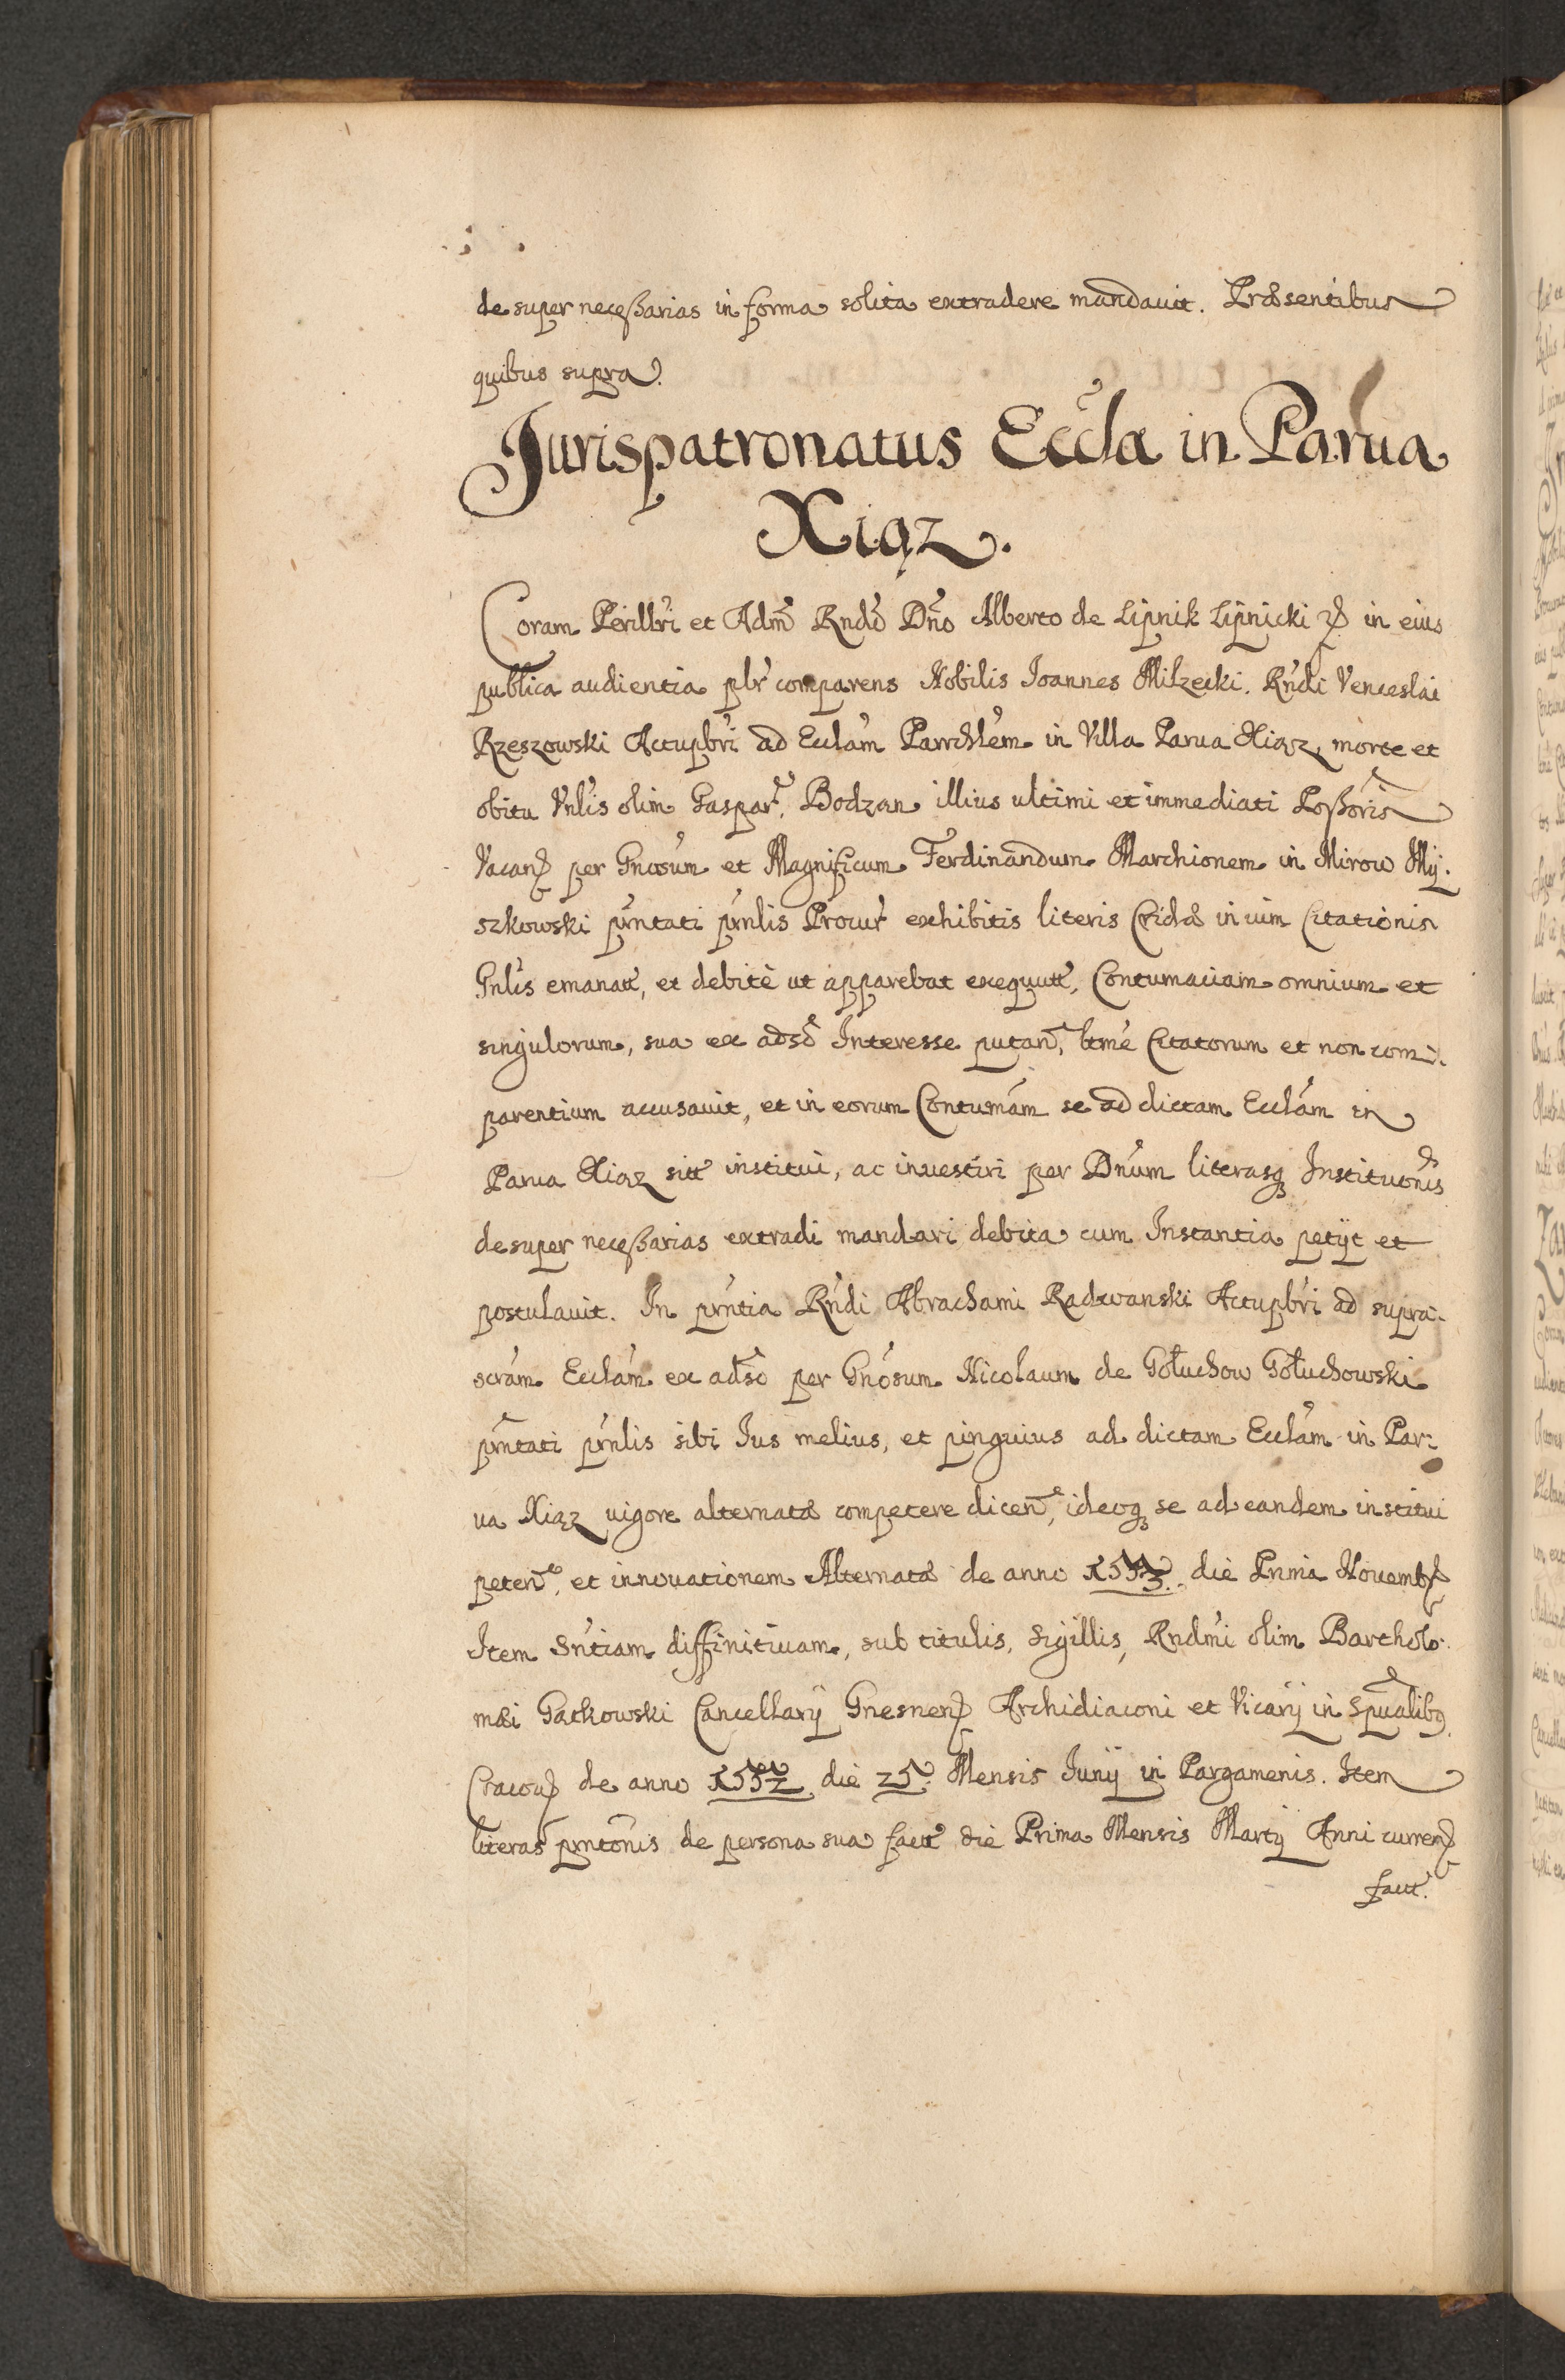 de super necessarias in forma solita extradere mandauit. Præsentibus
quibus supra.
Jurispatronatus Eccła in Parua
Xiąz.
Coram Perillri et Admo Rndo Dno Alberto de Lipnik Lipnicki in eius
publica audientia plr comparens Nobilis Joannes Milzecki. Rndi Venceslai
Rzeszowski Actupbri ad Ecclam Parrchlem in Villa Parua Xiąz, morte et
obitu Vnlis olim Gaspar. Bodzan illius ultimi et immediati Possoris
Vacan per Gnosum et Magnificum Ferdinandum Marchionem in Mirow My.
szkowski pntati pnlis Procur exhibitis literis Cridæ in uim Citationis
Gnlis emanatt, et debitè ut apparebat exequutt, Contumaciam omnium et
singulorum, sua ex adso Interesse putan, ltme Citatorum et non com.
parentium accusauit, et in eorum Contumam se ad dictam Ecclam in
Parua Xiąz sitt institui, ac inuestiri per Dnum literasq Institutonis
de super necessarias extradi mandari debita cum Instantia petijt et
postulauit. In pntia Rndi Abrachami Radwanski Actupbri ad supra-
scram Ecclam ex adso per Gnosum Nicolaum de Gołuchow Gołuchowski
pntati pnlis sibi Jus melius, et pinguius ad dictam Ecclam in Par-
ua Xiąz uigore alternatæ competere dicen, ideoq se ad eandem institui
peten, et innouationem Alternatæ de anno die Prima Nouemb
Item Sntiam diffinitiuam, sub titulis, Sigillis, Rndmi olim Bartholo-
mæi Gatkowski Cancellarij Gnesnen Archidiaconi et Vicarij in Spualibq
Cracou de anno die 25. Mensis Junij in Pargamenis. Item
literas pntonis de persona sua fact die Prima Mensis Martij Anni curren
fact.